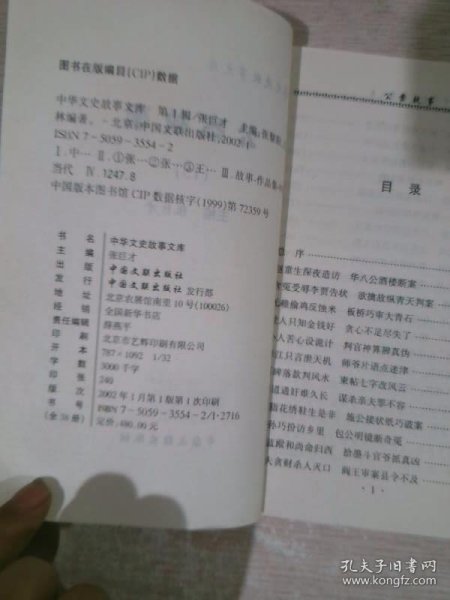 图书在版编目(CIP)数据
中华文史故事文库 第1辑/张巨才 主编
林编著。-北京:中国文联出版社,2002·1
ISBN 7-5059-3554-2
Ⅰ.中… Ⅱ.①张…②张…③王… Ⅲ.故事-作品集
当代 Ⅳ.I247.8
中国版本图书馆CIP数据核字(1999)第72359号
书名 中华文史故事文库
主编 张巨才
出版 中国文联出版社
发行 中国文联出版社 发行部
地址 北京农展馆南里10号(100026)
经销 全国新华书店
责任编辑 薛燕平
印刷 北京市艺辉印刷有限公司
开本 787×1092 1/32
字数 3000千字
印张 240
版次 2002年1月第1版第1次印刷
书号 ISBN 7-5059-3554-2/I·2716
(全38册) 定价,490.00元
公案故事
目录
序
童生深夜造访 华八公酒楼断案
冤受辱李贾告状 欲擒故纵青天判案
赖偷鸡反蚀米 板桥巧审大青石
人只知金钱好 贪心不足尽失了
人苦心设诡计 判官神算辨真伪
江只言泄天机 师爷片语点迷津
落款判风水 柬帖七字改风云
道通奸难久长 谋弟亲夫罪不容
花绣鞋生是非 施公接状纸巧破案
孙巧扮访乡里 包公明镜断奇冤
和尚命归西 拾墨斗官爷抓真凶
贪财杀人灭口 阎王审案县令不及
·1·
孔夫子旧书网
www.kongfz.com